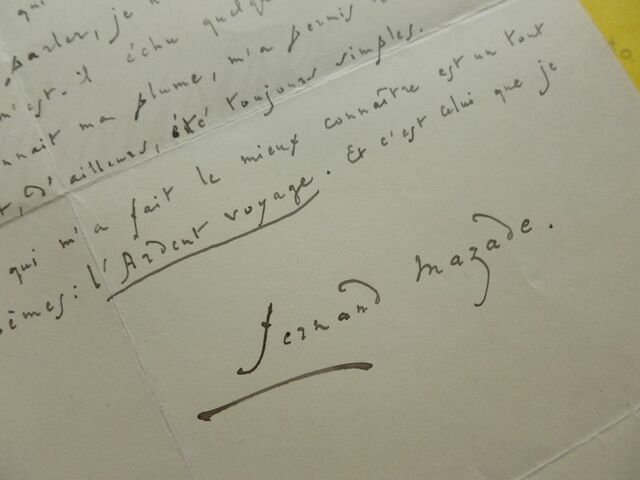 qui
parler, je n
m'est-il échu quelqu
nnait ma plume, m'a permis
t, d'ailleurs, été toujours simples.
qui m'a fait le mieux connaître est un tout
oèmes: l'Ardent voyage. Et c'est celui que je
Fernand Mazade.